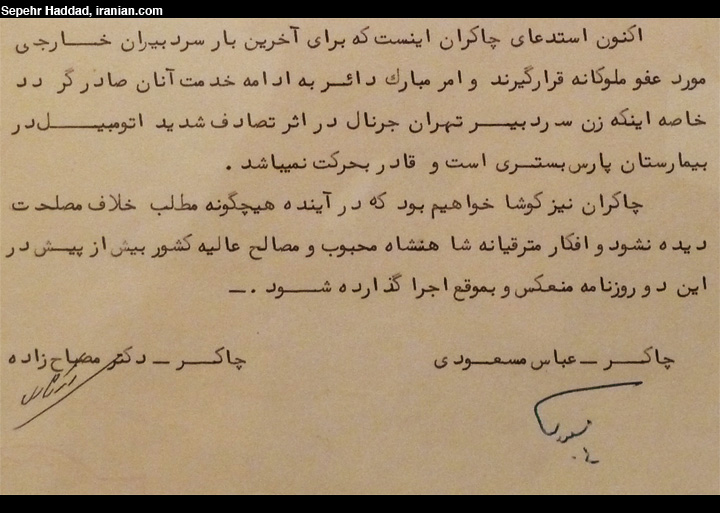 Sepehr Haddad, iranian.com
اکنون استدعای چاکران اینست که برای آخرین بار سردبیران خارجی
مورد عفو ملوکانه قرارگیرند و امر مبارك دائر به ادامه خدمت آنان صادر گردد
خاصه اینکه زن سردبیر تهران جرنال در اثر تصادف شدید اتومبیل در
بیمارستان پارس بستری است و قادر بحرکت نمیباشد .
چاکران نیز کوشا خواهیم بود که در آینده هیچگونه مطلب خلاف مصلحت
دیده نشود و افکار مترقیانه شاهنشاه محبوب و مصالح عالیه کشور بیش از پیش در
این دو روزنامه منعکس و بموقع اجرا گذارده شود . ــ
چاکر ــ عباس مسعودی
چاکر ــ دکتر مصباح زاده